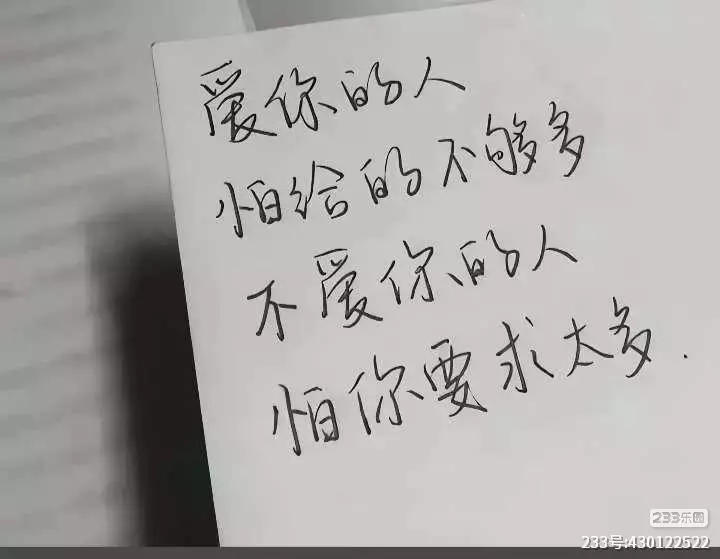 爱你的人
怕给的不够多
不爱你的人
怕你要求太多.
233乐园
233号:430122522